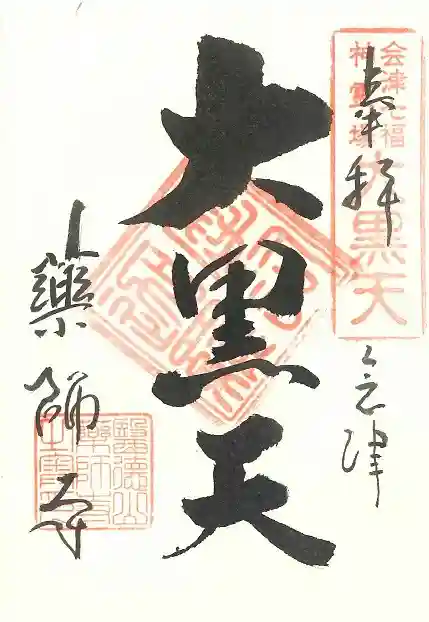 奉拝
会津七福
神霊場
大黒天
会津
大黒天
薬師寺